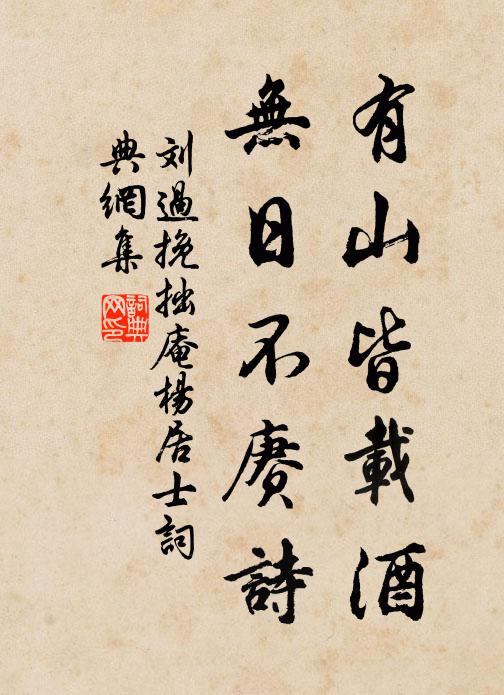 有山皆載酒
無日不赓詩
刘過挽拙庵楊居士詞
典網集
詞典網印